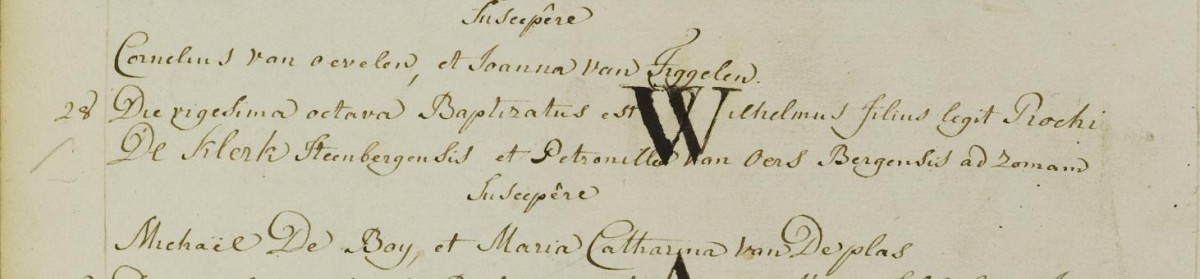 Suscepêre
Cornelius van oevelen, et Joanna van Tiggelen.
28 Die vigesima octava Baptizatus est Wilhelmus filius legit Rochi
De Klerk Steenbergensis et Petronilla van Oers Bergensis ad zomam
Suscepêre
Michaël De Boy, et Maria Catharina van De plas